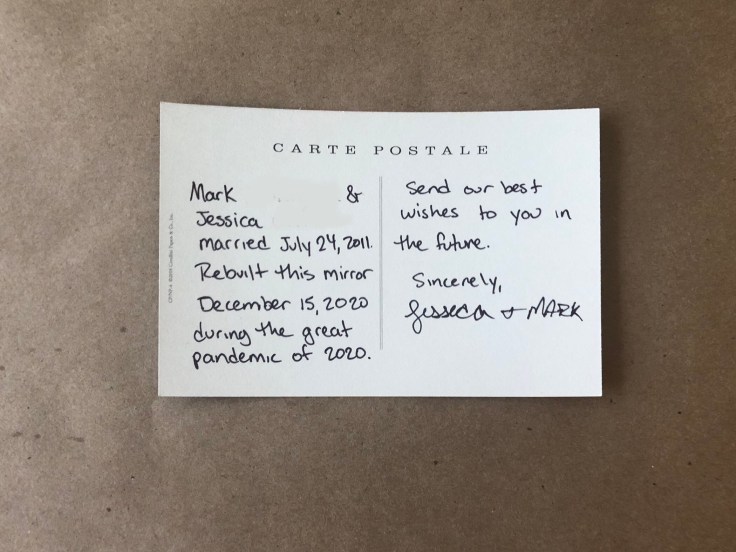 CARTE POSTALE
Mark &
Jessica
married July 24, 2011.
Rebuilt this mirror
December 15, 2020
during the great
pandemic of 2020.
Send our best
wishes to you in
the future.
Sincerely,
Jessica + MARK